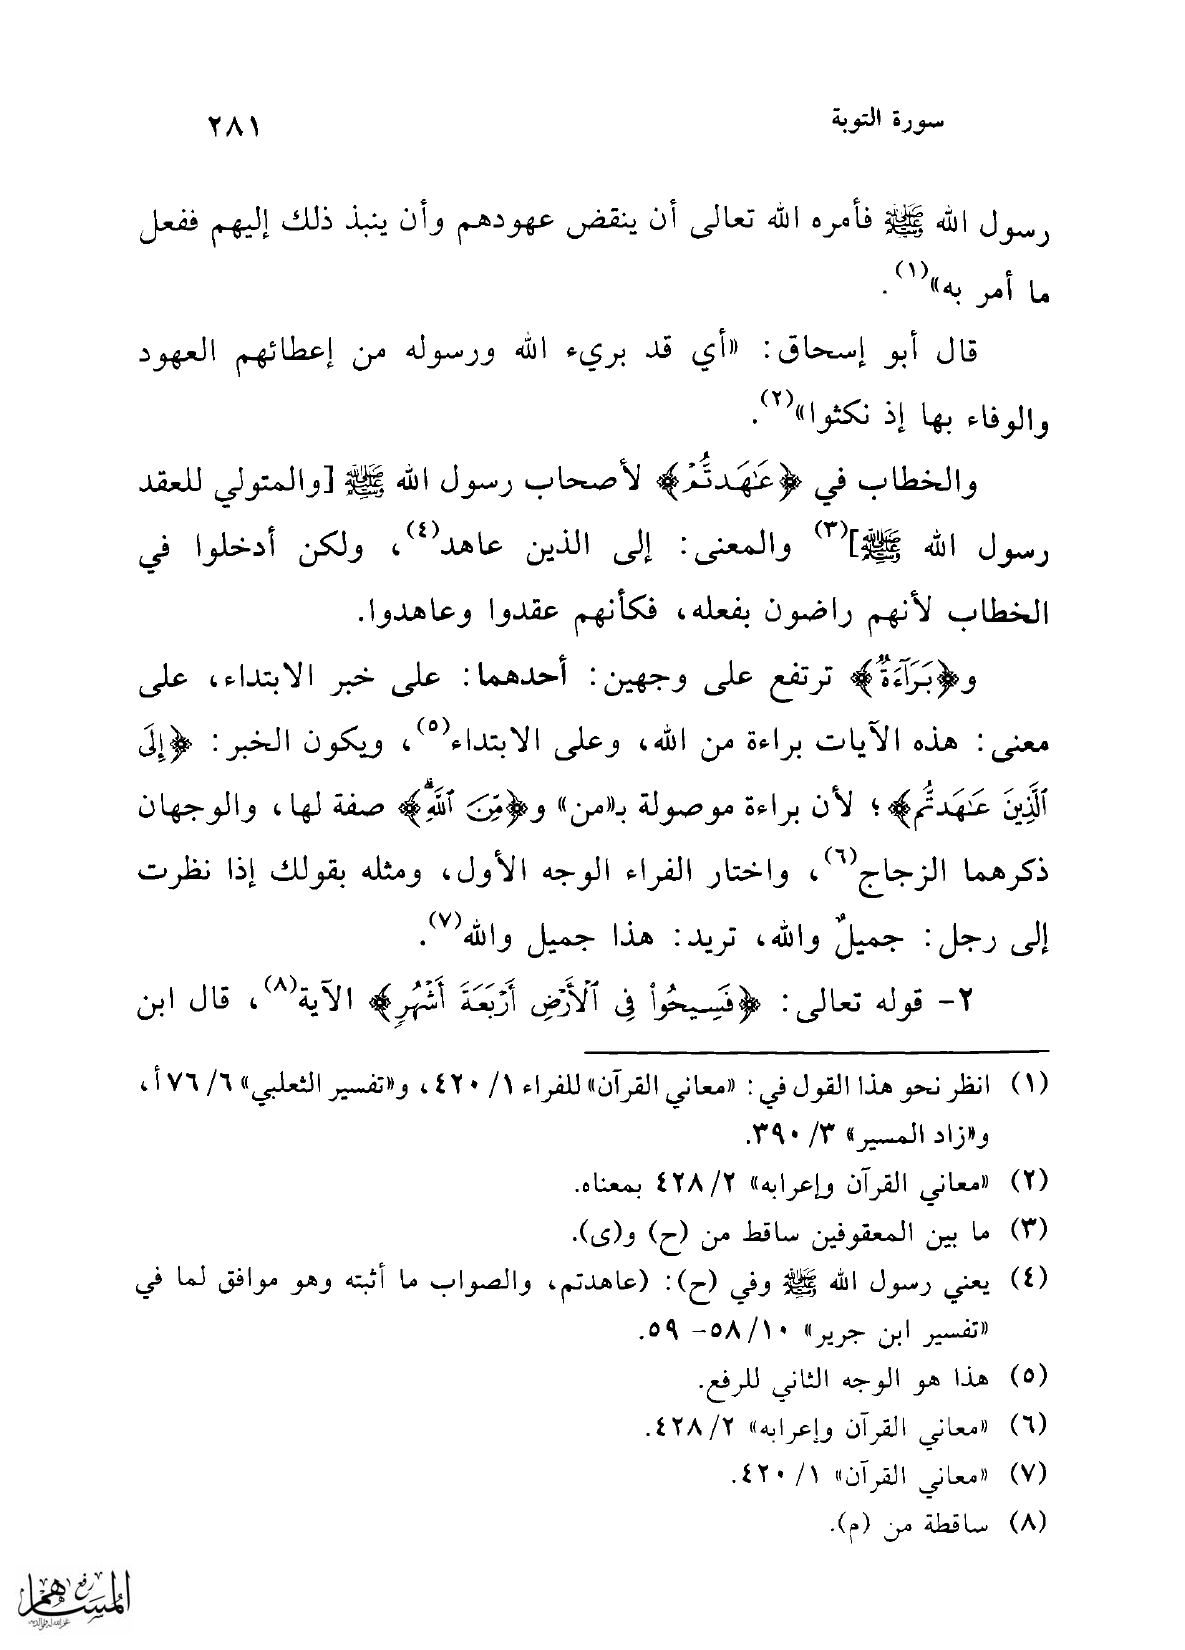 سورة التوبة
٢٨١
رسول الله ﷺ فأمره الله تعالى أن ينقض عهودهم وأن ينبذ ذلك إليهم ففعل
ما أمر به»(١).
قال أبو إسحاق: «أي قد بريء الله ورسوله من إعطائهم العهود
والوفاء بها إذ نكثوا»(٢).
والخطاب في ﴿عَٰهَدتُّمْ﴾ لأصحاب رسول الله ﷺ [والمتولي للعقد
رسول الله ﷺ](٣) والمعنى: إلى الذين عاهد(٤)، ولكن أدخلوا في
الخطاب لأنهم راضون بفعله، فكأنهم عقدوا وعاهدوا.
و﴿بَرَآءَةٌ﴾ ترتفع على وجهين: أحدهما: على خبر الابتداء، على
معنى: هذه الآيات براءة من الله، وعلى الابتداء(٥)، ويكون الخبر: ﴿إِلَى
ٱلَّذِينَ عَٰهَدتُّم﴾؛ لأن براءة موصولة بـ«من» و﴿مِّنَ ٱللَّهِ﴾ صفة لها، والوجهان
ذكرهما الزجاج(٦)، واختار الفراء الوجه الأول، ومثله بقولك إذا نظرت
إلى رجل: جميلٌ والله، تريد: هذا جميل والله(٧).
٢- قوله تعالى: ﴿فَسِيحُوا۟ فِى ٱلْأَرْضِ أَرْبَعَةَ أَشْهُرٍ﴾ الآية(٨)، قال ابن
(١) انظر نحو هذا القول في: «معاني القرآن» للفراء ١/ ٤٢٠، و«تفسير الثعلبي» ٦/ ٧٦ أ،
و«زاد المسير» ٣/ ٣٩٠.
(٢) «معاني القرآن وإعرابه» ٢/ ٤٢٨ بمعناه.
(٣) ما بين المعقوفين ساقط من (ح) و(ى).
(٤) يعني رسول الله ﷺ وفي (ح): (عاهدتم، والصواب ما أثبته وهو موافق لما في
«تفسير ابن جرير» ١٠/ ٥٨- ٥٩.
(٥) هذا هو الوجه الثاني للرفع.
(٦) «معاني القرآن وإعرابه» ٢/ ٤٢٨.
(٧) «معاني القرآن» ١/ ٤٢٠.
(٨) ساقطة من (م).